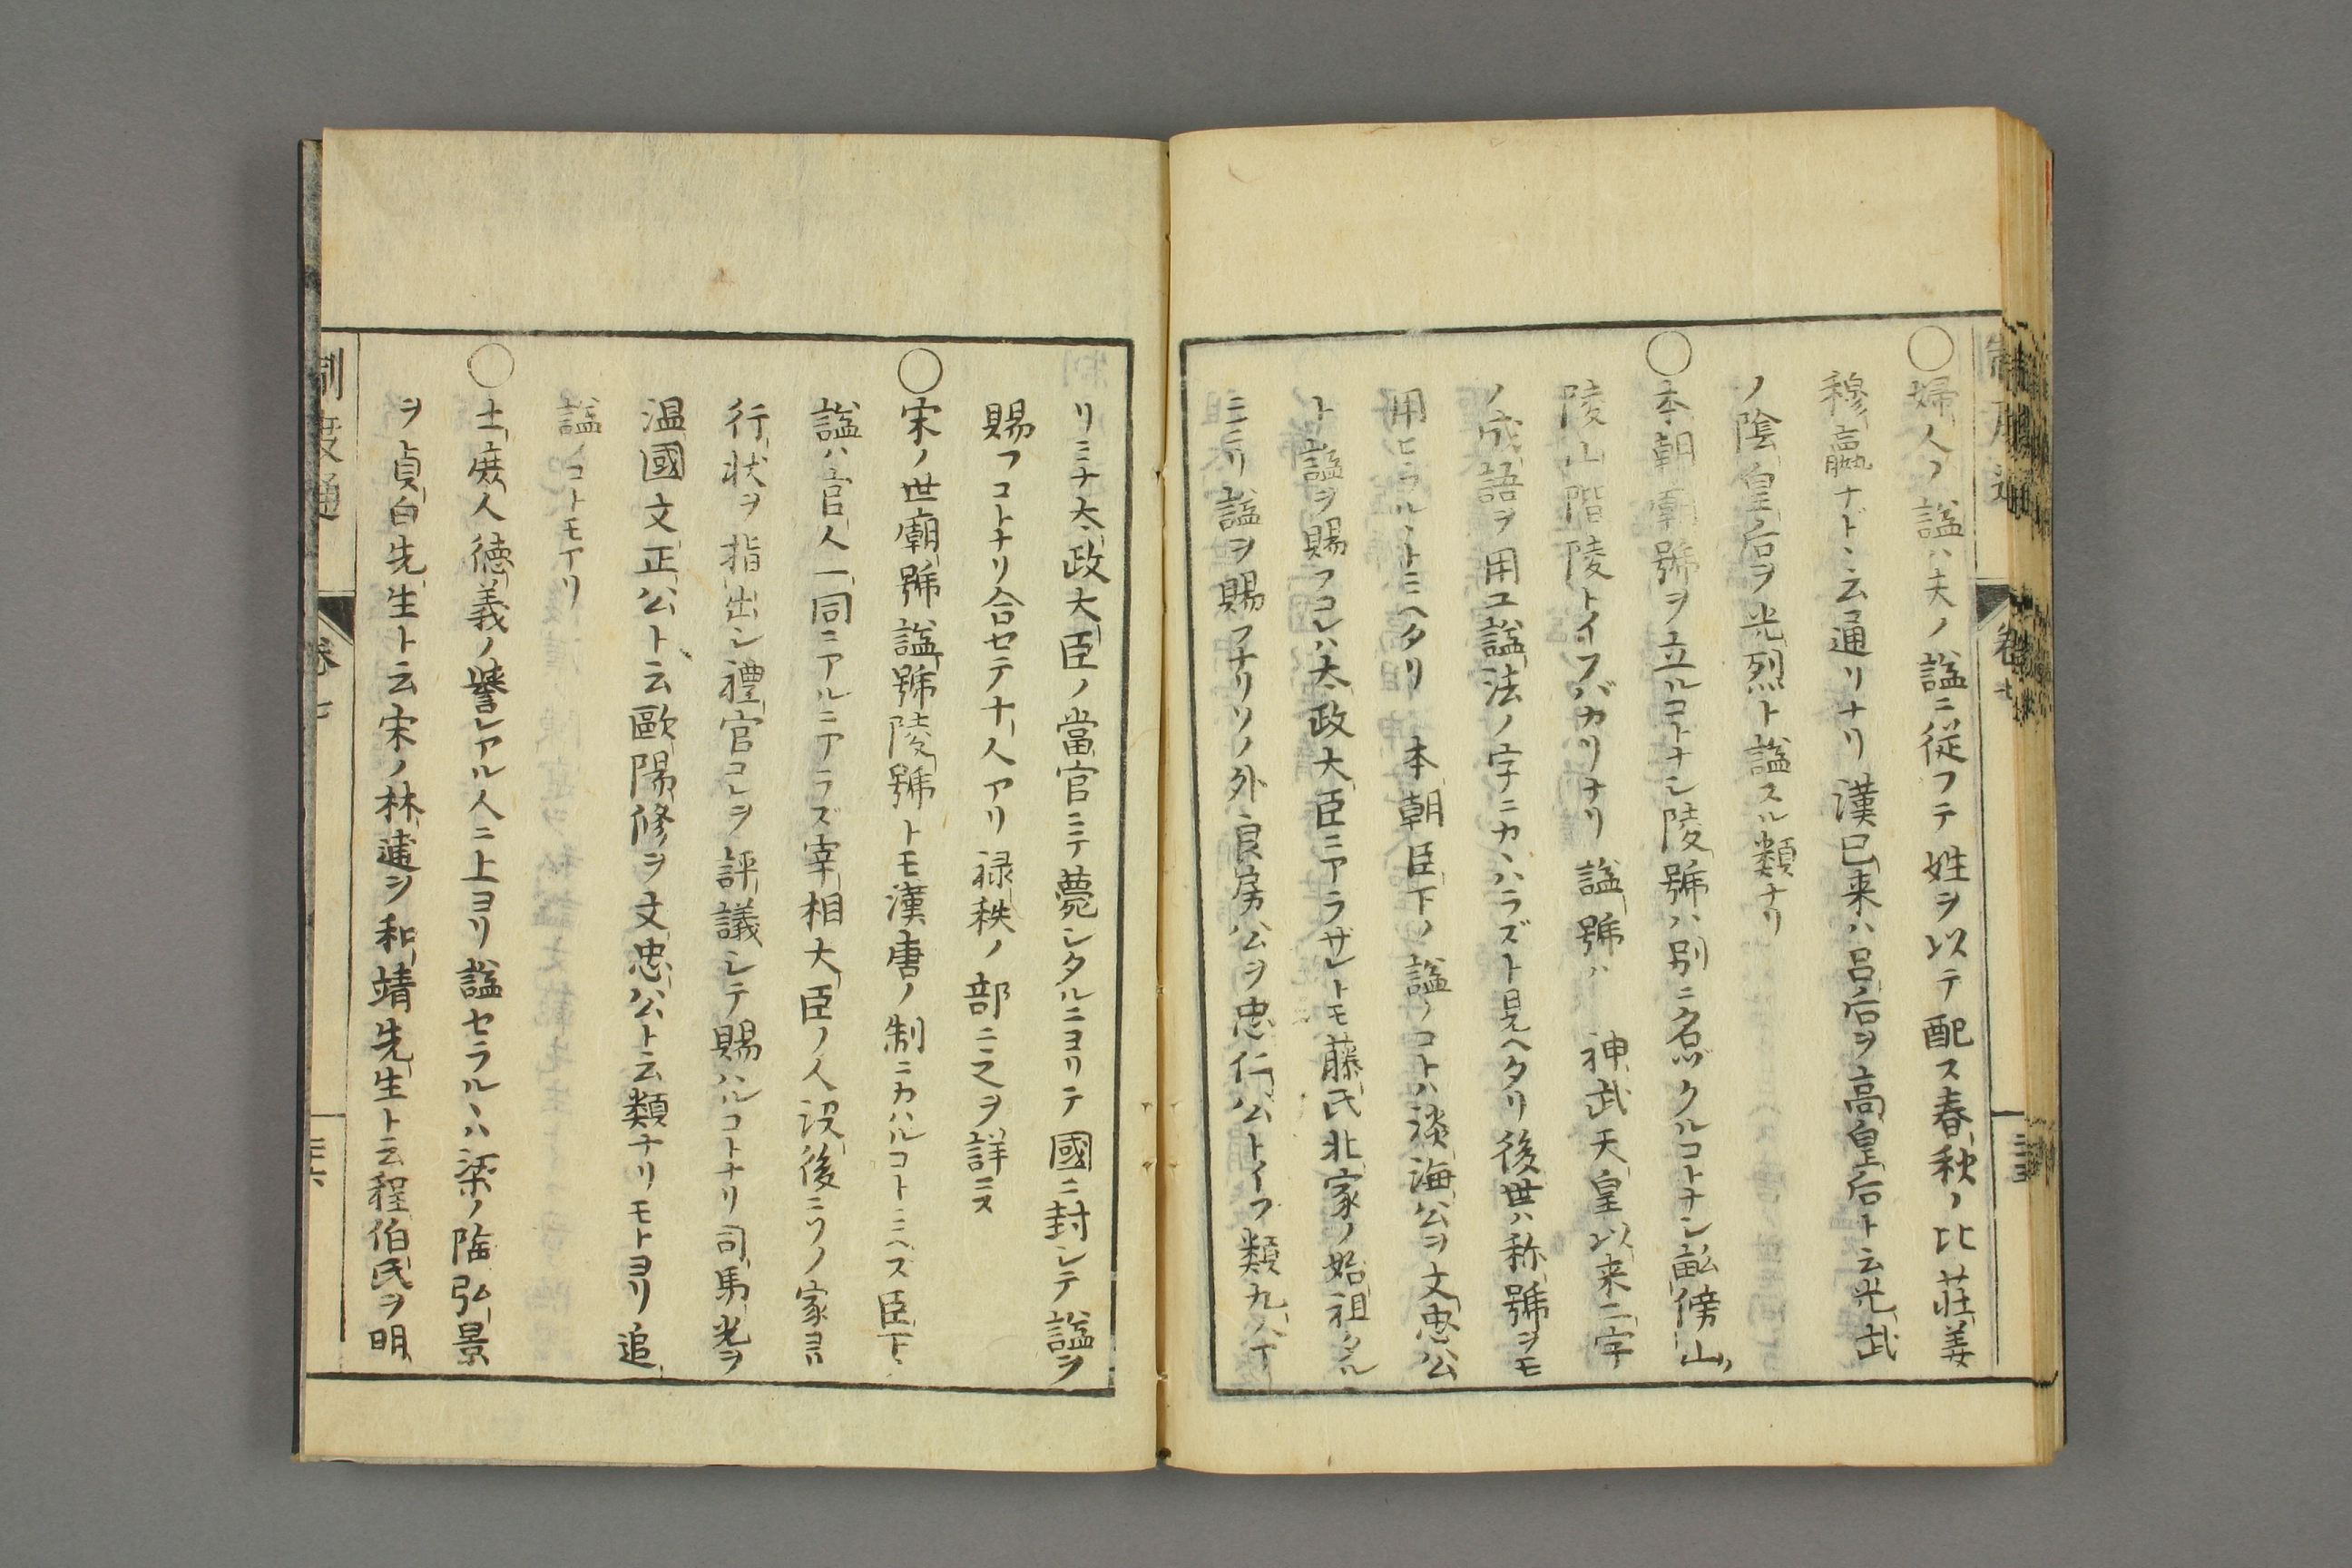 〇婦人ノ謚ハ夫ノ謚ニ從フテ姓ヲ以テ配ス春秋ノ比莊姜
穆嬴ナド云通リナリ漢已来ハ呂后ヲ高皇后ト云光武
ノ陰皇后ヲ光烈ト謚スル類ナリ
〇本朝廟號ヲ立ルコトナシ陵號ハ別ニ名ヅクルコトナシ畝傍山
陵山階陵トイフバカリナリ謚號ハ 神武天皇以来二字
ノ成語ヲ用ユ謚法ノ字ニカヽハラズト見ヘタリ後世ハ称號ヲモ
用ヒラルヽトミヘタリ 本朝臣下ノ謚ノコトハ淡海公ヲ文忠公
ト謚ヲ賜フコレハ太政大臣ニアラザレトモ藤氏北家ノ始祖タル
ニヨリ謚ヲ賜フナリソノ外良房公ヲ忠仁公トイフ類九人ア
リミナ太政大臣ノ當官ニテ薨シタルニヨリテ國ニ封シテ謚ヲ
賜フコトナリ合セテ十人アリ禄秩ノ部ニ之ヲ詳ニス
〇宋ノ世廟號謚號陵號トモ漢唐ノ制ニカハルコトミヘズ臣下ノ
謚ハ官人一同ニアルニアラズ宰相大臣ノ人没後ニソノ家ヨリ
行状ヲ指出シ禮官コレヲ評議シテ賜ハルコトナリ司馬光ヲ
温國文正公ト云歐陽修ヲ文忠公ト云類ナリモトヨリ追
謚ノコトモアリ
〇士庶人徳義ノ譽レアル人ニ上ヨリ謚セラルヽハ梁ノ陶弘景
ヲ貞白先生ト云宋ノ林逋ヲ和靖先生ト云程伯氏ヲ明
制度通
巻七